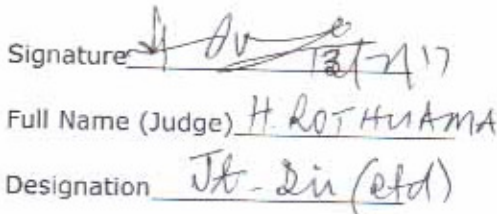 Signature
Full Name (Judge) H. ROTHUAMA
Designation Jt. Dir (etd)